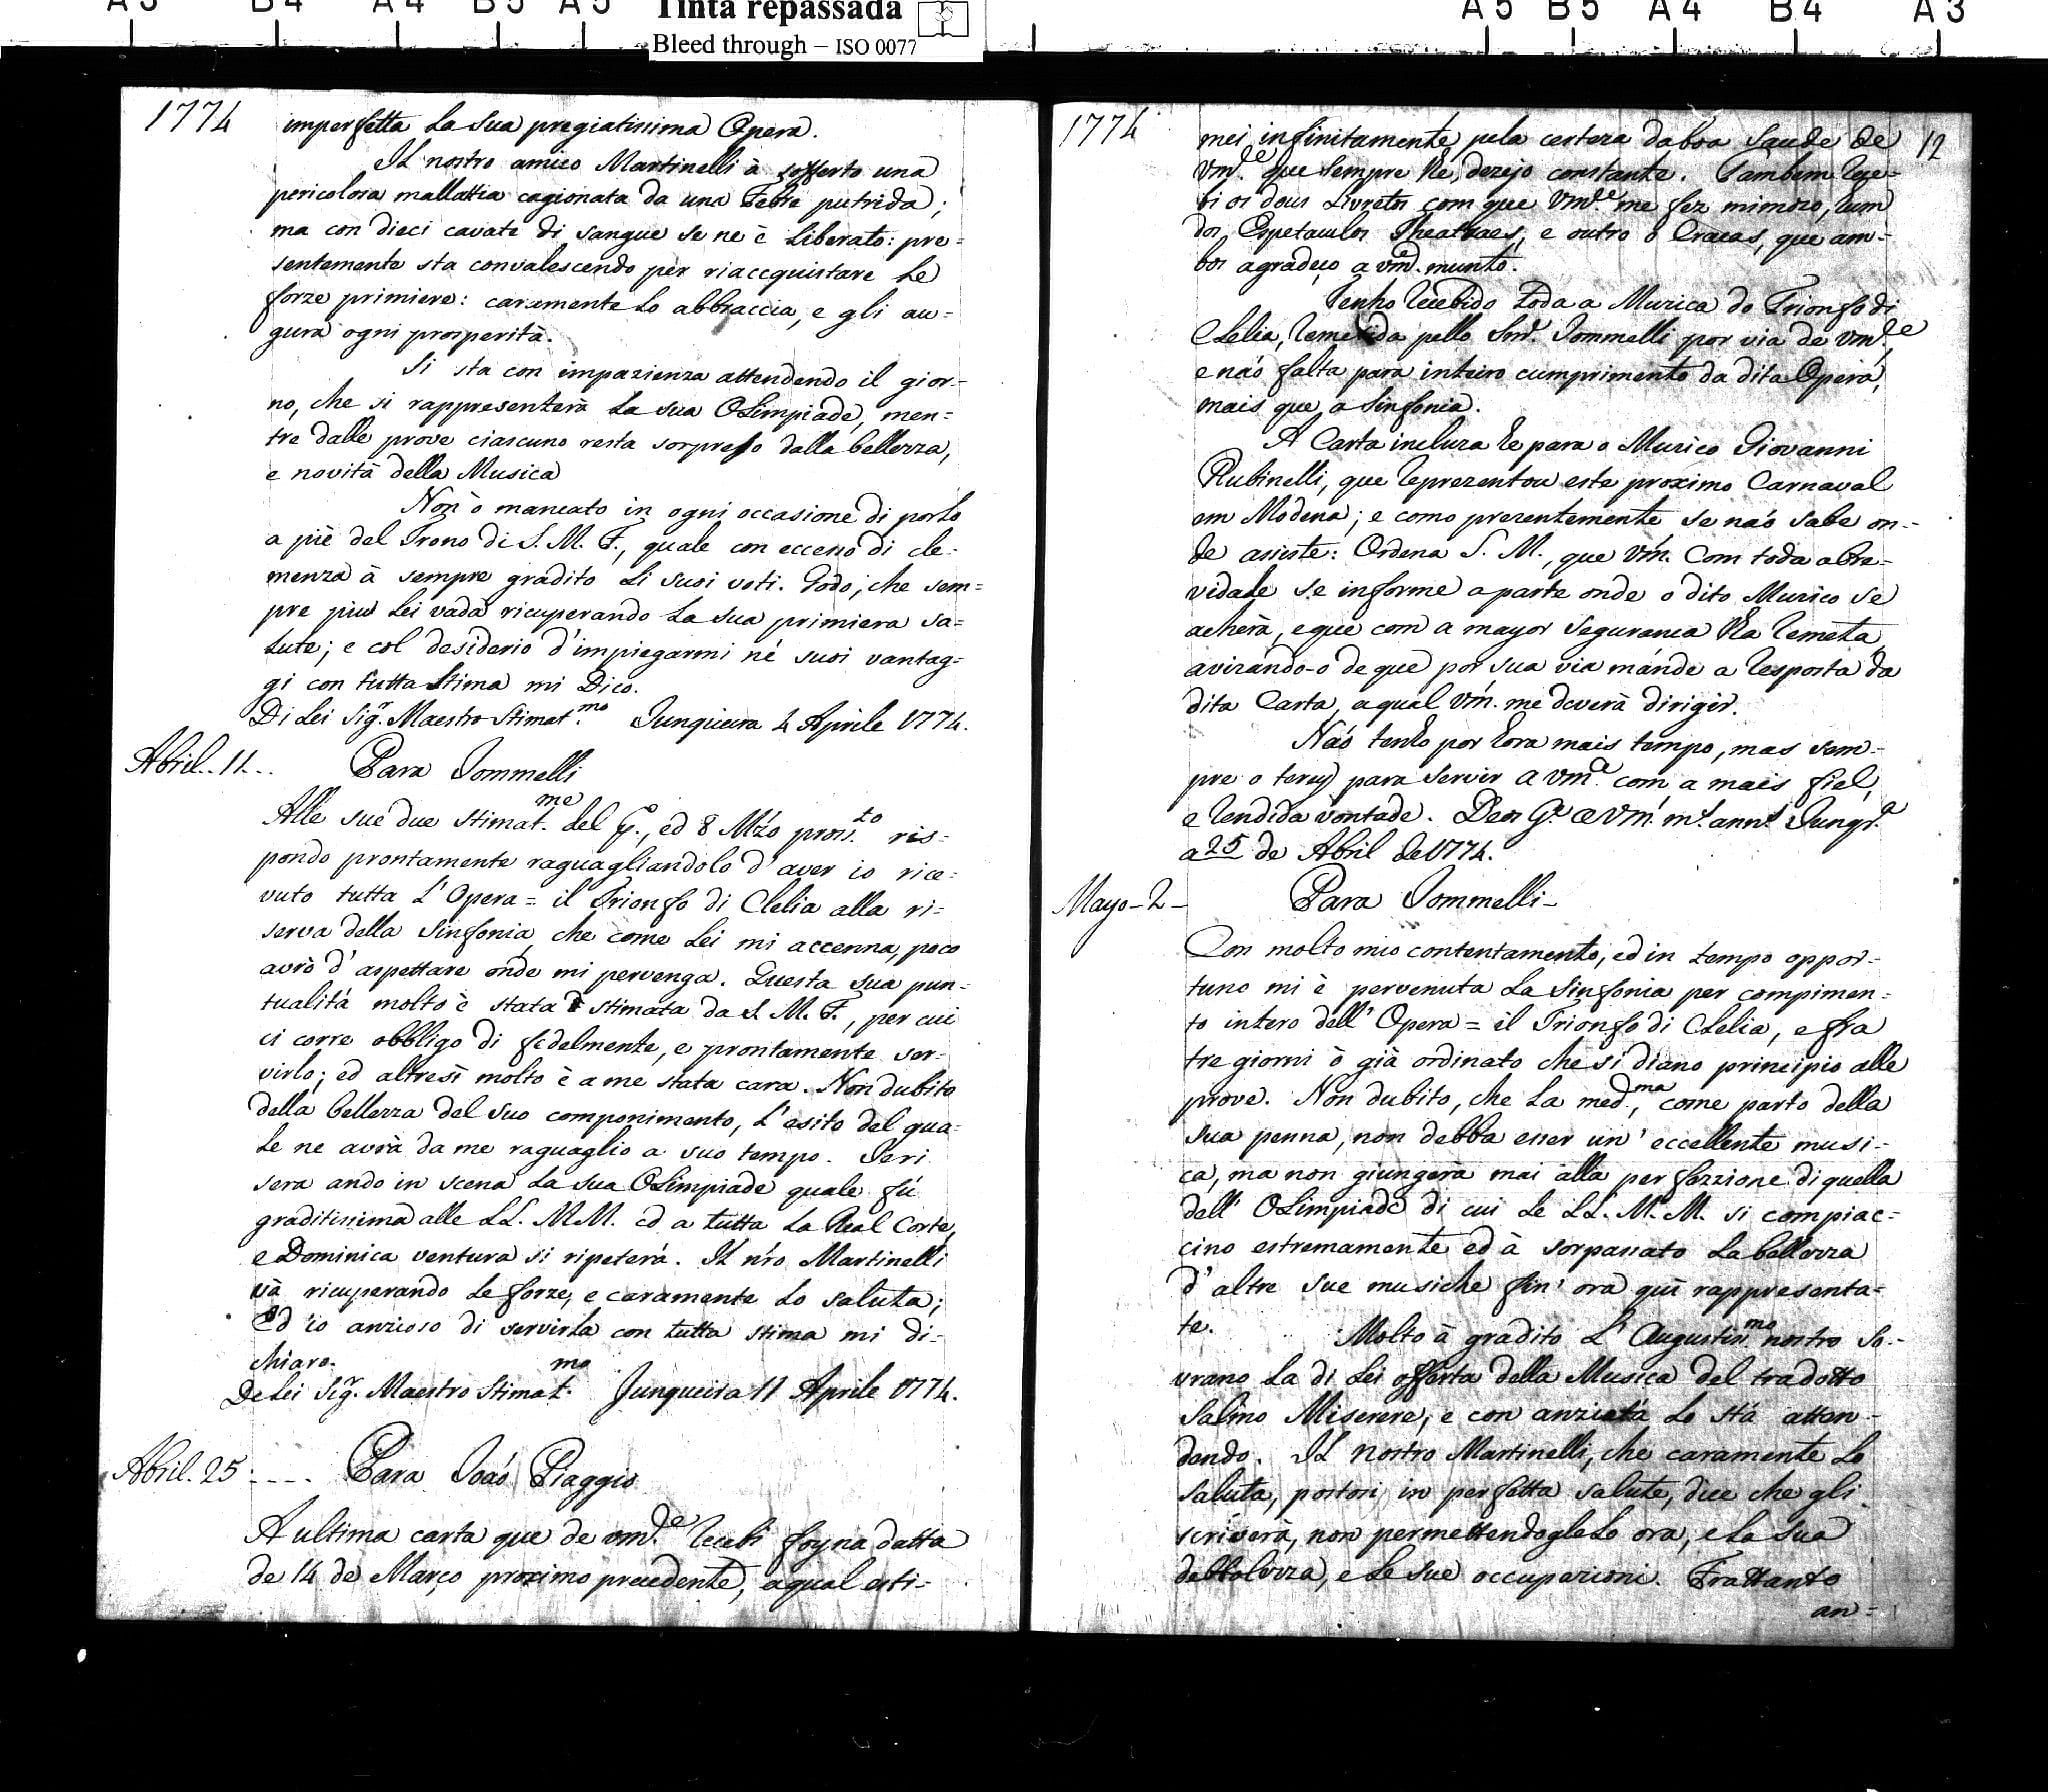 A3 B4 A4 B5 A5
Tinta repassada
Bleed through – ISO 0077
A5 B5 A4 B4 A3
1774
imperfetta la sua pregiatissima Opera.
Il nostro amico Martinelli à sofferto una
pericolosa mallattia cagionata da una Febre putrida;
ma con dieci cavate di sangue se ne è liberato: pre=
sentemente sta convalescendo per riaccquistare le
forze primiere: caramente lo abbraccia, e gli au=
gura ogni prosperità.
Si sta con impazienza attendendo il gior=
no, che si rappresenterà la sua Olimpiade, men=
tre dalle prove ciascuno resta sorpreso dalla bellezza,
e novità della Musica
Non ò mancato in ogni occasione di porlo
a piè del Trono di S. M. F., quale con eccesso di cle=
menza à sempre gradito li suoi voti. Godo, che sem=
pre piu lei vada ricuperando la sua primiera sa=
lute; e col desiderio d'impiegarmi né suoi vantag=
gi con tutta stima mi Dico.
Di Lei Sigr. Maestro Stimat.mo Junqueira 4 Aprile 1774.
Abril. 11...
Para Jommelli
Alle sue due stimat.me del Po., ed 8 Mžo pross.to ris=
pondo prontamente raguagliandolo d'aver io rice=
vuto tutta l'Opera = il Trionfo di Clelia alla ri=
serva della Sinfonia, che come lei mi accenna, poco
avrò d'aspettare onde mi pervenga. Questa sua pun=
tualitá molto è stata stimata da S. M. F., per cui
ci corre obbligo di fedelmente, e prontamente ser=
virlo; ed altresì molto è a me stata cara. Non dubito
della bellezza del suo componimento, l'esito del qua=
le ne avrà da me raguaglio a suo tempo. Jeri
sera ando in scena la sua Olimpiade quale fú
graditissima alle LL. MM. ed a tutta la Real Corte,
e Dominica ventura si ripeterá. Il nro Martinelli
và ricuperando le forze, e caramente lo saluta;
Ed io anzioso di servirla con tutta stima mi di=
chiaro.
De Lei Sigr. Maestro Stimat.mo Junqueira 11 Aprile 1774.
Abril. 25 ....
Para João Piaggio
A ultima carta que de vm.de recebi foy na datta
de 14 de Março proximo precedente, a qual esti=
1774
12
mei infinitamente pela certeza da boa Saude de
Vm.de que sempre lhe dezejo constante. Tambem rece=
bi os dous Livretos com que Vm.de me fez mimozo, hum
dos Espetaculos Theatraes, e outro o Cracas, que am=
bos agradeço a vm.de munto.
Tenho recebido toda a Muzica do Trionfo di
Clelia, remetida pello Snr. Jommelli por via de vm.de,
e não falta para inteiro cumprimento da dita Opera,
mais que a Sinfonia.
A Carta incluza he para o Muzico Giovanni
Rubinelli, que reprezentou este proximo Carnaval
em Modena; e como prezentemente se não sabe on=
de asiste: Ordena S. M., que Vm. Com toda a bre=
vidade se informe a parte onde o dito Muzico se
acherà, e que com a mayor segurança lha remeta,
avizándo-o de que por sua via mánde a resposta da
dita Carta, a qual Vm. me deverà dirigir.
Não tenho por hora mais tempo, mas sem=
pre o terey para servir a vm.e com a mais fiel,
e rendida vontade. Deos G.e a Vm. m.s ann.s Junqr.a
a 25 de Abril de 1774.
Mayo - 2 -
Para Jommelli -
Con molto mio contentamento, ed in tempo oppor=
tuno mi è pervenuta la Sinfonia per compimen=
to intero dell'Opera = il Trionfo di Clelia, e fra
tre giorni ò già ordinato che si diano principio alle
prove. Non dubito, che la med.ma, come parto della
sua penna, non debba esser un' eccellente musi=
ca, ma non giungerà mai alla perfezzione di quella
dell'Olimpiade di cui le LL. M. M. si compiac=
cino estremamente ed à sorpassato la bellezza
d'altre sue musiche fin' ora quì rappresenta=
te.
Molto à gradito l'Augustis.mo nostro So=
vrano la di lei offerta della Musica del tradotto
Salmo Miserere, e con anzietà lo stà atten=
dendo. Il nostro Martinelli, che caramente lo
saluta, postosi in perfetta salute, dice che gli
scriverà, non permettendoglelo ora, e la sua
debbolezza, e le sue occupazioni. Frattanto
an=